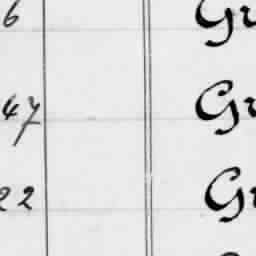 6 Gr
47 Gr
22 Gr